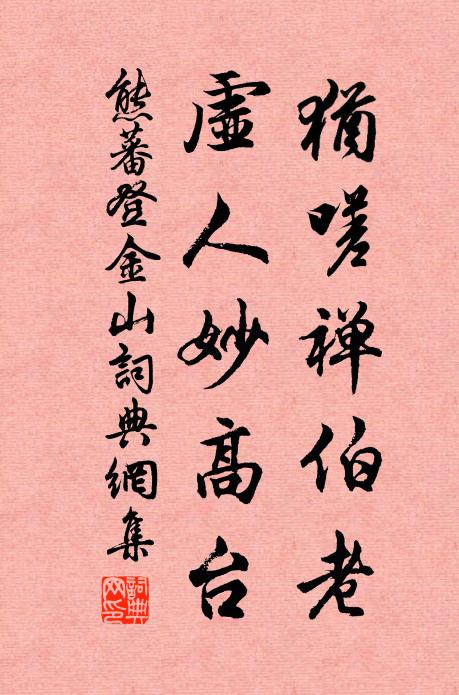 猶嗟禅伯老
虛人妙高台
熊蕃登金山詞典網集
詞典网印